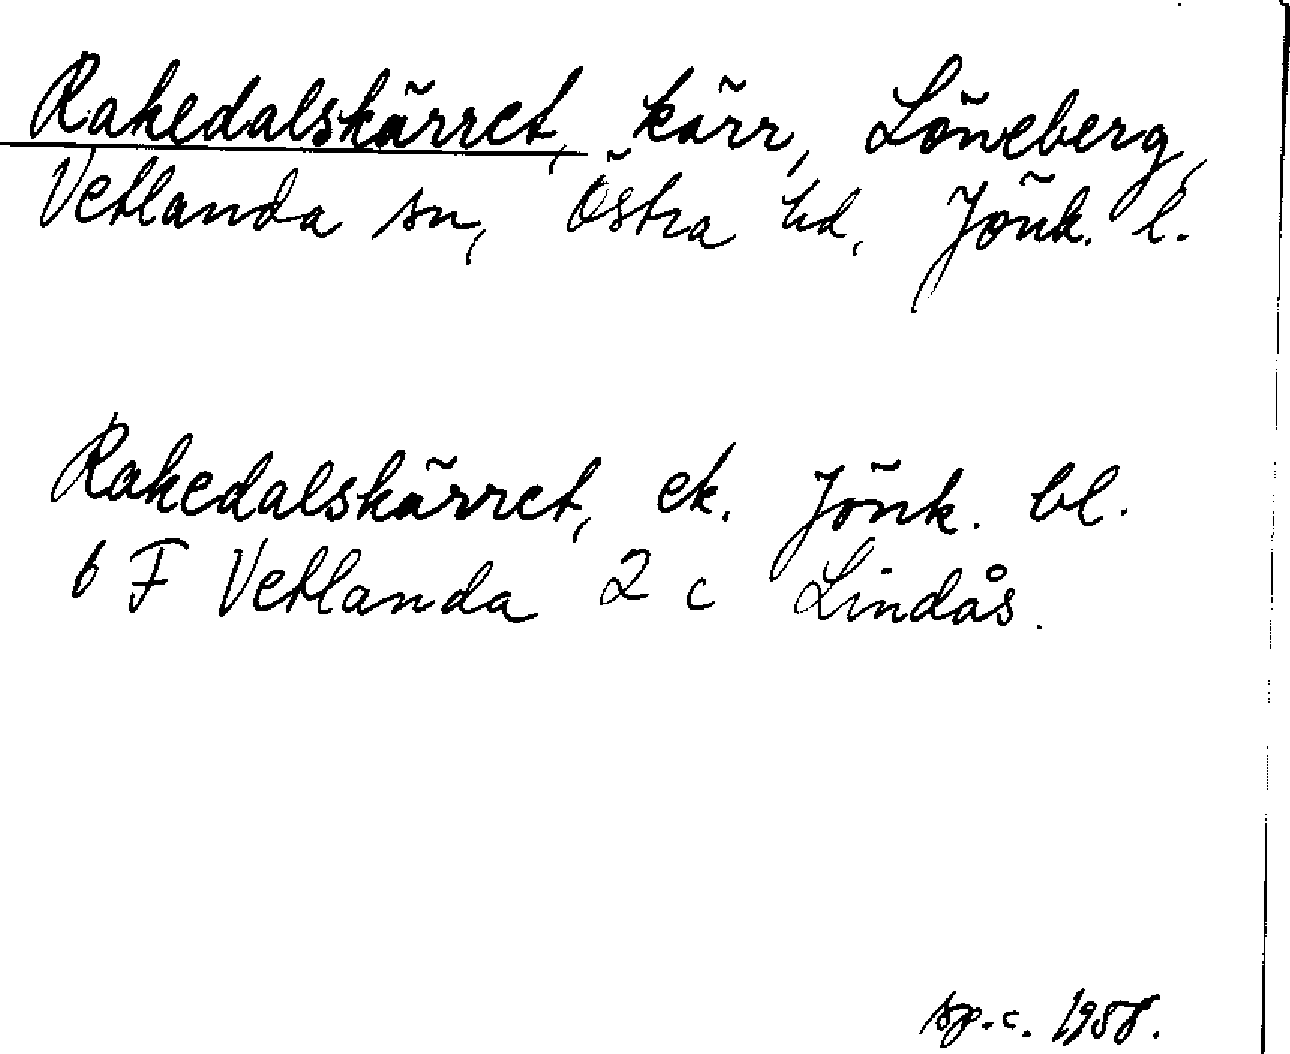 Rakedalskärret, kärr, Löneberg,
Vetlanda sn, Östra hd, Jönk. l.
Rakedalskärret, ek. Jönk. bl.
6 F Vetlanda 2 c Lindås.
sp.c. 1958.